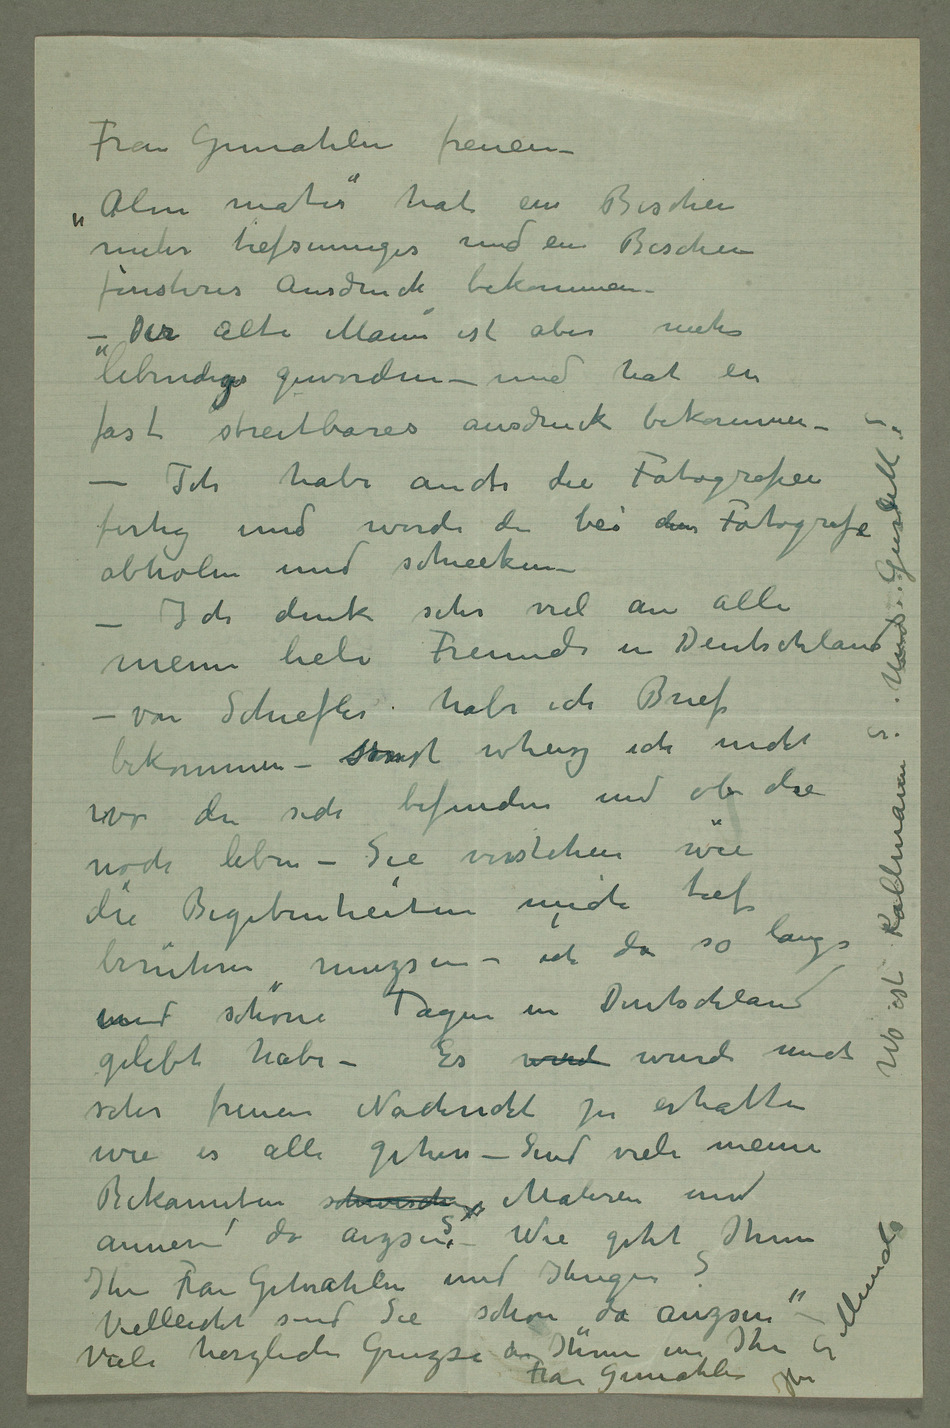 Frau Gemahlin freuen –
„Alm mater“ hat ein Bischen
mehr tiefsinniges und ein Bischen
finsteres Ausdruck bekommen –
– Der alte Mann ist aber mehr
lebendiges geworden – und hat en
fast streitbares ausdruck bekommen –
– Ich habe auch die Fotografien
fertig und werde die bei den Fotografe
abholen und schicken –
– Ich denk sehr viel an alle
meine liebe Freunde in Deutschland
– von Schiefler habe ich Brief
bekommen – sonst wheisz ich nicht
wo die sich befinden und ob die
noch leben – Sie verstehen wie
die Begebenheiten mich tief
berühren muszen – ich da so lange
und schöne Tagen in Deutschland
gelebt habe – Es wurde mich
sehr freuen Nachricht zu erhalten
wie es alle gehen – Sind viele meine
Bekannten Maleren und
annern da auszen? – Wie geht Ihnen
Ihre Frau Gehmahlin und Ihriger?
Vielleicht sind Sie schon da auszen –
Viele herzliche Grusze an Ihnen un Ihr
Frau Gemahlin
Wo ist Kollmann